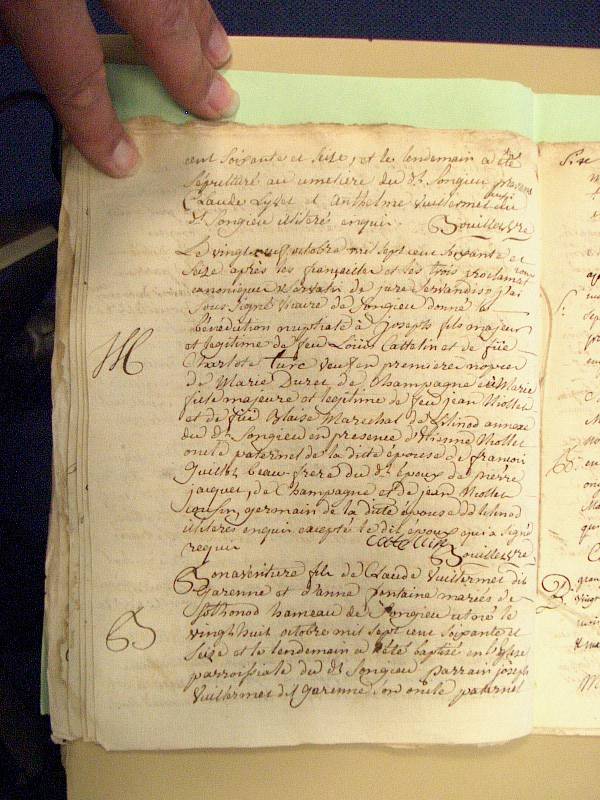 cent soixante et seize, et le lendemain a été
sépulturé au cimetiere du dt Songieu presens
Claude Lyvet et Anthelme Vuillermet aussi du
dt Songieu illiteré enquis. Bouillevre
Le vingt neuf octobre mil sept cent soixante et
seize après les fiançailles et les trois proclamations
canoniques servatis de jure servandis j'ai
sous signé vicaire de Songieu donné la
bénédiction nuptiale à Joseph fils majeur
M
et legitime de feu Louis Cattelin et de füe
Charlote turc veuf en premiere nopces
de Marie Duret de Champagne et Marie
fille majeure et legitime de feu jean Mollet
et de füe Blaise Marechal de Lilnod annexe
du dt Songieu en presence d'Etienne Mollet
oncle paternel de la dite épouse de françois
Guillot beau frere du dt Epoux de pierre
jacquet, de Champagne et de jean Mollet
cousin germain de la dite épouse de Lilnod
illiteres enquis excepté le dit époux qui a signé
requis Cattellin Bouillevre
Bonaventure fils de Claude Vuillermet dit
Garenne et d'anne fontaine mariés de
Sothonod hameau de Songieu est né le
B
vingt huit octobre mil sept cent soixante et
seize et le lendemain a été baptisé en l'Eglise
parroissiale du dt Songieu parrain joseph
Vuillermet dt Garenne son oncle paternel